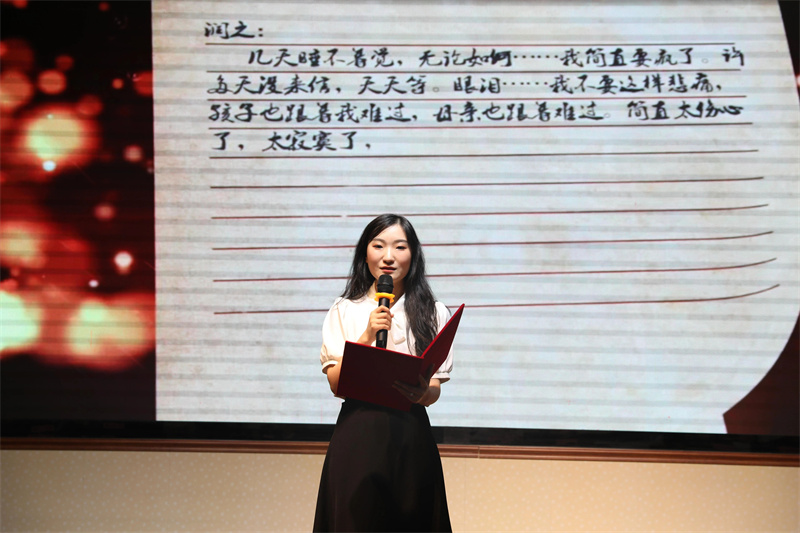 润之：
几天睡不着觉，无论如何……我简直要疯了。许
多天没来信，天天等。眼泪……我不要这样悲痛，
孩子也跟着我难过，母亲也跟着难过。简直太伤心
了，太寂寞了，